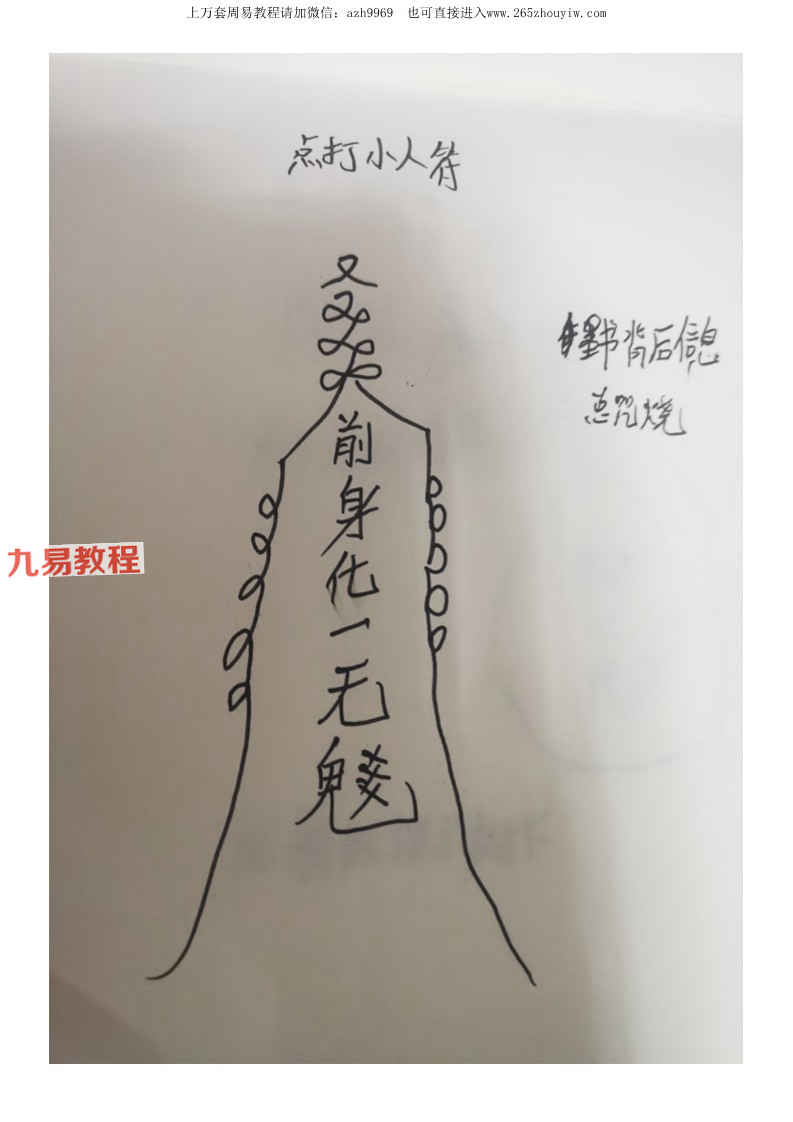 上万套周易教程请加微信：azh9969 也可直接进入www.265zhouyiw.com
点打小人符
墨书背后信息
总咒烧
前
身
化
一
无
九易教程